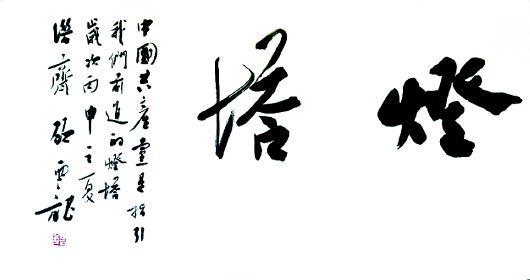 燈塔
中國共產黨是指引
我們前進的燈塔
歲次丙申之夏
齋雲龍